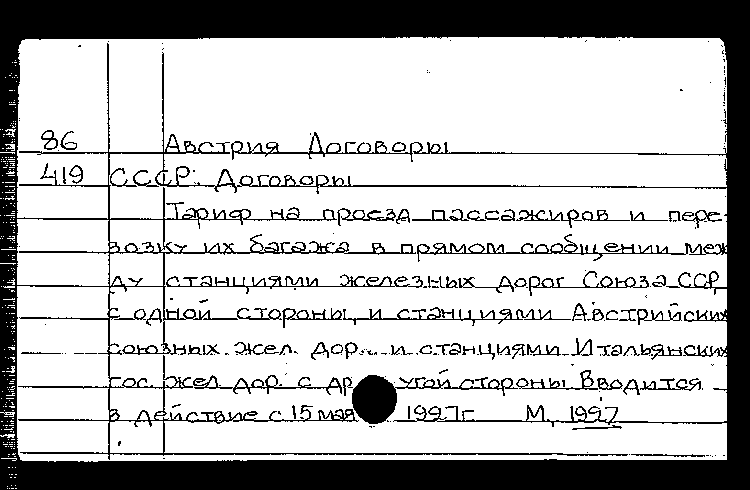 86 Австрия Договоры
419 СССР: Договоры
Тариф на проезд пассажиров и пере-
возку их багажа в прямом сообщении меж
ду станциями железных дорог Союза ССР,
с одной стороны, и станциями Австрийских
союзных жел. дор. и станциями Итальянских
гос. жел дор. с другой стороны Вводится
в действие с 15 мая 1927г. М., 1927